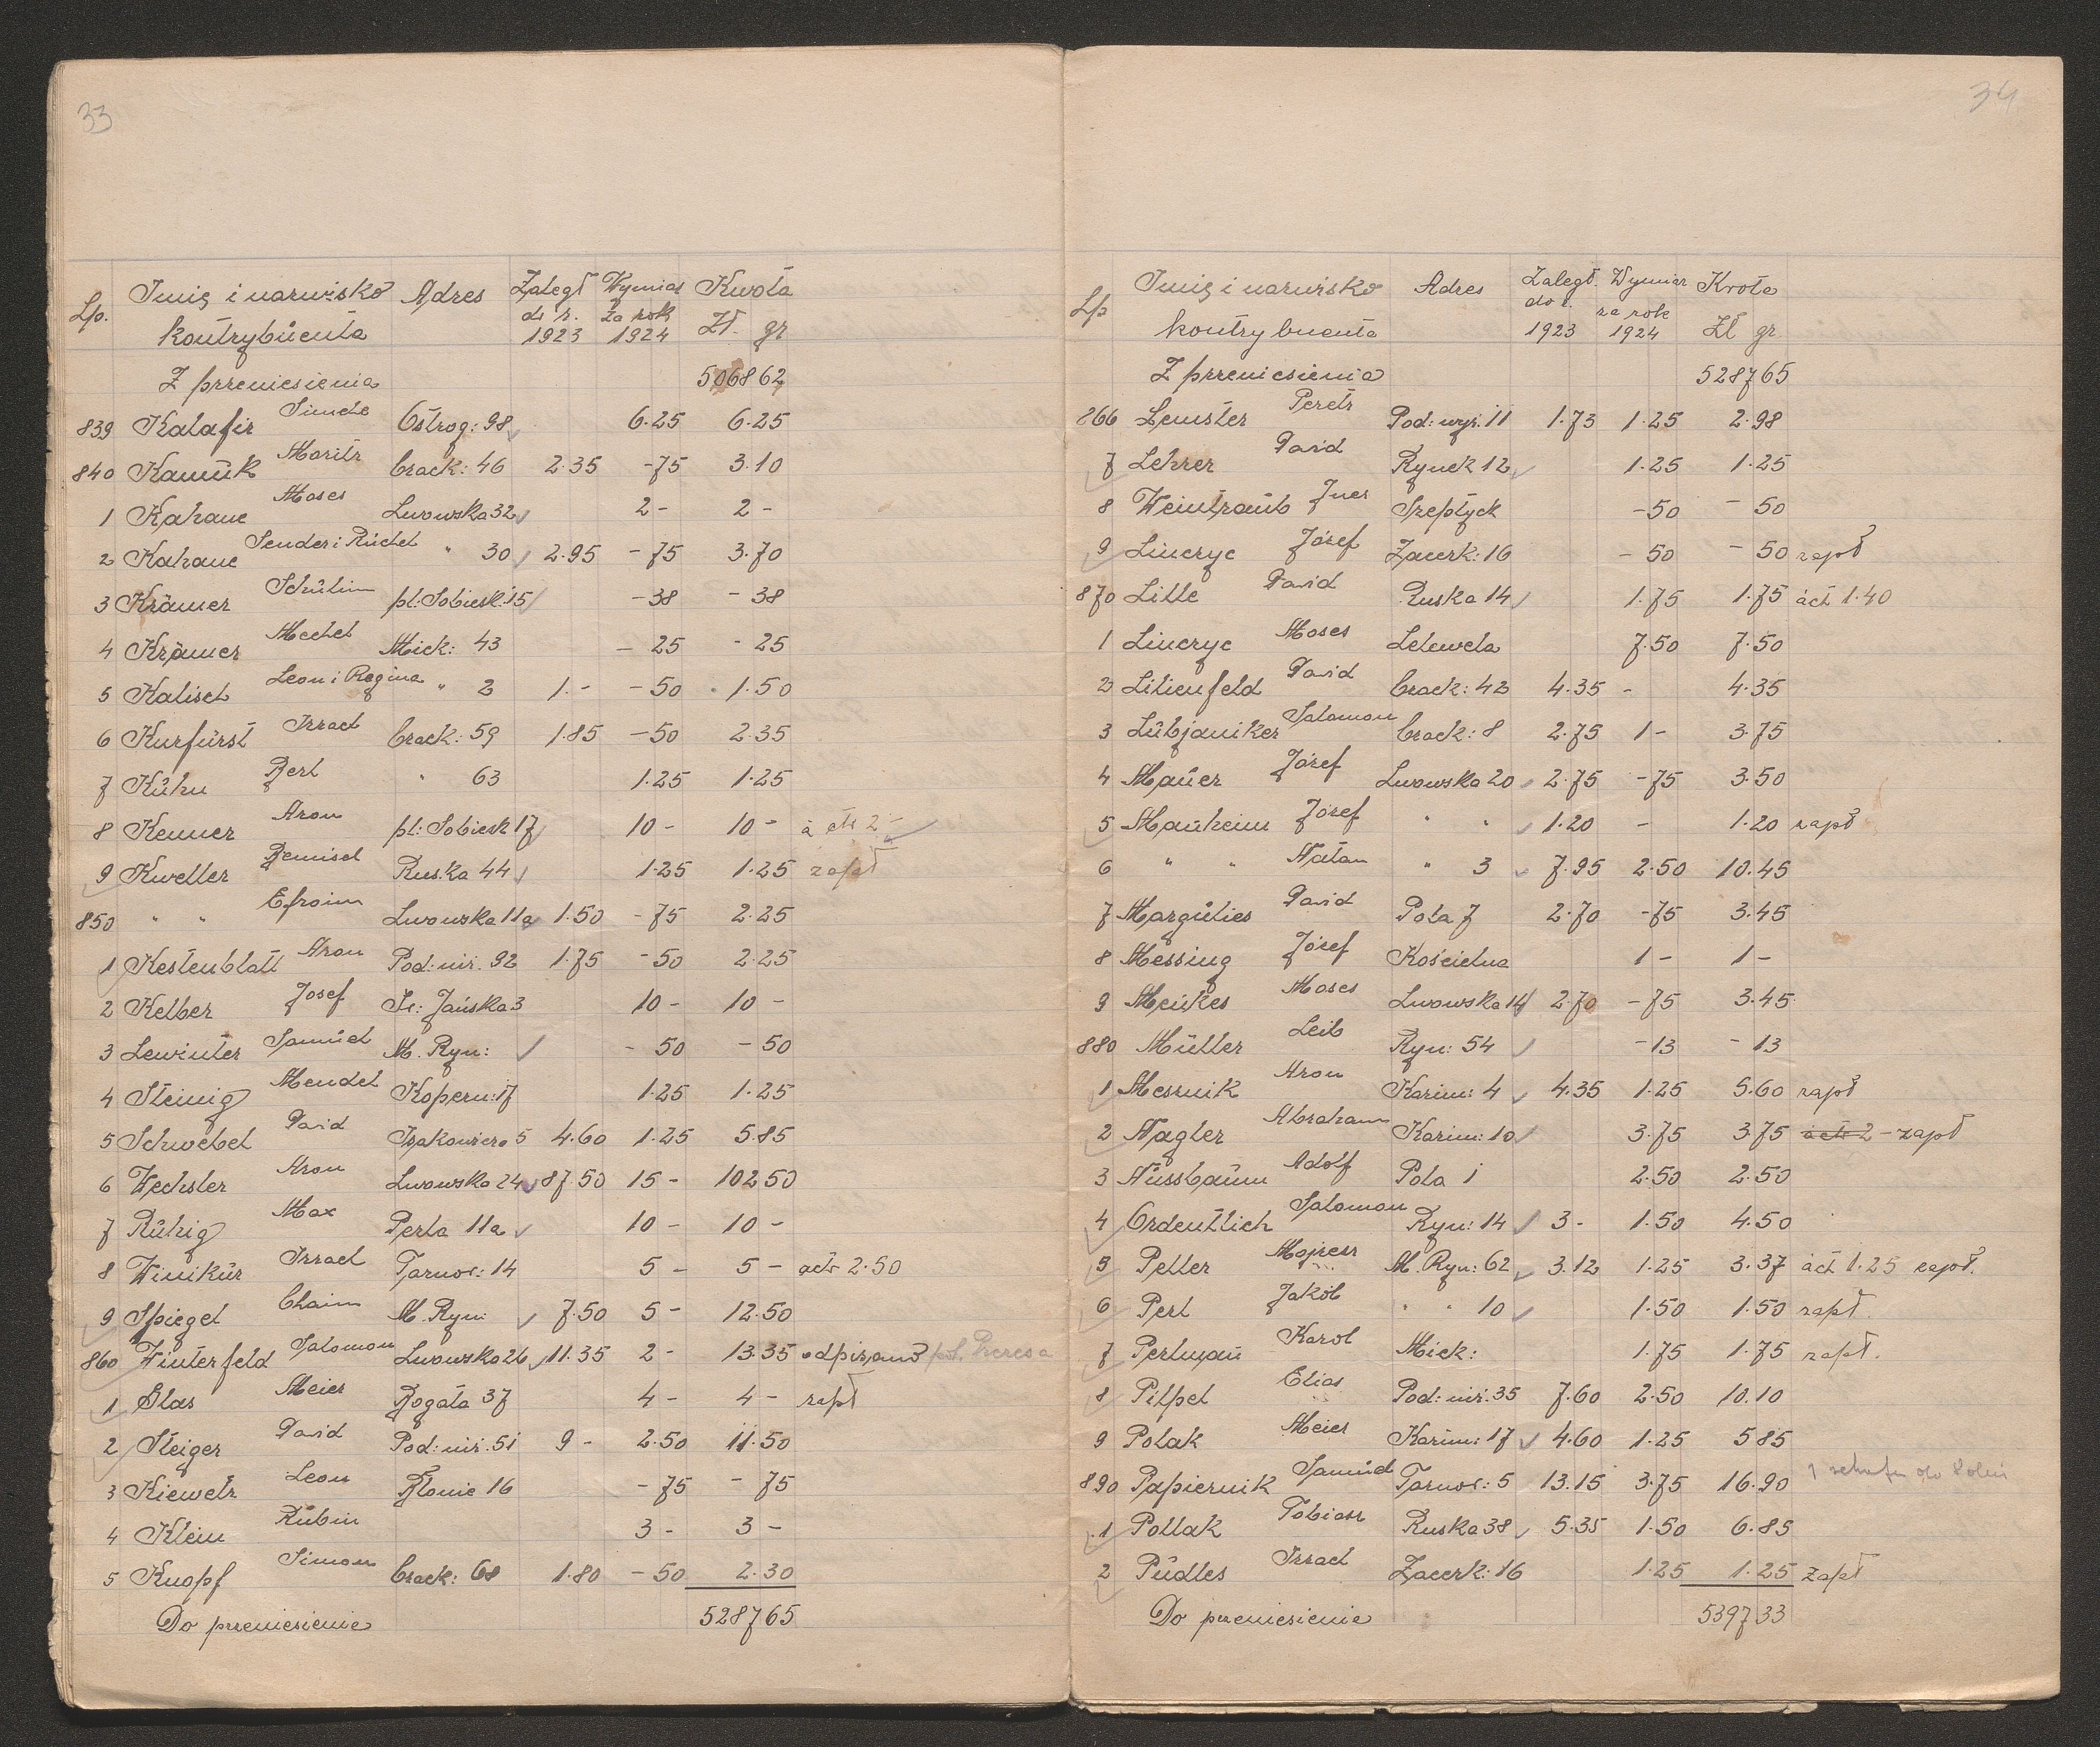 33
Lp. Imię i nazwisko kontrybuenta Adres Zaległ do r. 1923 Wymiar za rok 1924 Kwota Zł. gr
Z przeniesienia 5068 62
839 Katafir Simche Ostrog: 98 6.25 6.25
840 Kamuk Moritz Crack: 46 2.35 -75 3.10
1 Kahane Moses Lwowska 32 2- 2-
2 Kahane Sender i Ruchel " 30 2.95 -75 3.70
3 Krämer Schulim pl: Sobiesk. 15 -38 -38
4 Krämer Mechel Mick: 43 -25 -25
5 Kalisch Leon i Regina " 2 1.- -50 1.50
6 Kurfürst Izrael Crack: 59 1.85 -50 2.35
7 Kühn Berl " 63 1.25 1.25
8 Kenner Aron pl: Sobiesk 17 10- 10- à cto 2-
9 Kweller Beniseh Ruska 44 1.25 1.25 zapł
850 " " Efroim Lwowska 11a 1.50 -75 2.25
1 Kestenblatt Aron Pod: niż. 92 1.75 -50 2.25
2 Kelber Josef Śt: Jańska 3 10- 10-
3 Lewinter Samuel M. Ryn: -50 -50
4 Steinig Mendel Kopern: 17 1.25 1.25
5 Schwebel David Czakowicza 5 4.60 1.25 5.85
6 Wechsler Aron Lwowska 24 87.50 15- 102 50
7 Ruhig Max Perla 11a 10- 10-
8 Winikur Izrael Tarnow: 14 5- 5- acto 2.50
9 Spiegel Chaim M. Ryn: 7.50 5- 12.50
860 Winterfeld Salomon Lwowska 26 11.35 2- 13.35 odpisano p.t. Prezesa
1 Glas Meier Rogata 37 4- 4- zapł
2 Steiger David Pod: niż. 51 9- 2.50 11.50
3 Kiewetz Leon Błonie 16 -75 -75
4 Klein Rubin 3- 3-
5 Knopf Simon Crack: 68 1.80 -50 2.30
Do przeniesienie 5287 65
34
Lp Imię i nazwisko kontrybuenta Adres Zaległ. do r. 1923 Wymiar za rok 1924 Kwota Zł gr.
Z przeniesienia 5287 65
866 Lemster Peretz Pod: wyż. 11 1.73 1.25 2.98
7 Lehrer David Rynek 12 1.25 1.25
8 Weintraub Szeptyck -50 -50
9 Linczyc Józef Zacerk: 16 -50 -50 zapł
870 Lille David Ruska 14 1.75 1.75 áct 1.40
1 Linczyc Moses Lelewela 7.50 7.50
2 Lilienfeld David Crack: 42 4.35 - 4.35
3 Lubjaniker Salomon Crack: 8 2.75 1- 3.75
4 Mauer Józef Lwowska 20 2.75 -75 3.50
5 Manheim Józef " " 1.20 - 1.20 zapł
6 " " Natan " 3 7.95 2.50 10.45
7 Margulies David Pola 7 2.70 -75 3.45
8 Messing Józef Kościelna 1- 1-
9 Meükes Moses Lwowska 14 2.70 -75 3.45
880 Müller Leib Ryn: 54 -13 -13
1 Mesznik Aron Kazim: 4 4.35 1.25 5.60 zapł
2 Nagler Abraham Kazim: 10 3.75 3.75 acto 2- zapł
3 Nussbaum Adolf Pola 1 2.50 2.50
4 Ordentlich Salomon Ryn: 14 3- 1.50 4.50
5 Peller Mojżesz M. Ryn: 62 3.12 1.25 3.37 áct 1.25 zapł.
6 Perl Jakób " " 10 1.50 1.50 zapł.
7 Perlman Karol Mick: 1.75 1.75 zapł.
8 Pilpel Elias Pod: niż. 35 7.60 2.50 10.10
9 Polak Meier Kazim: 17 4.60 1.25 5 85
890 Papiernik Samuel Tarnow: 5 13.15 3.75 16.90
1 Pollak Tobiasz Ruska 38 5.35 1.50 6.85
2 Pudles Izrael Zacerk: 16 1.25 1.25 zapł
Do przeniesienie 5397 33